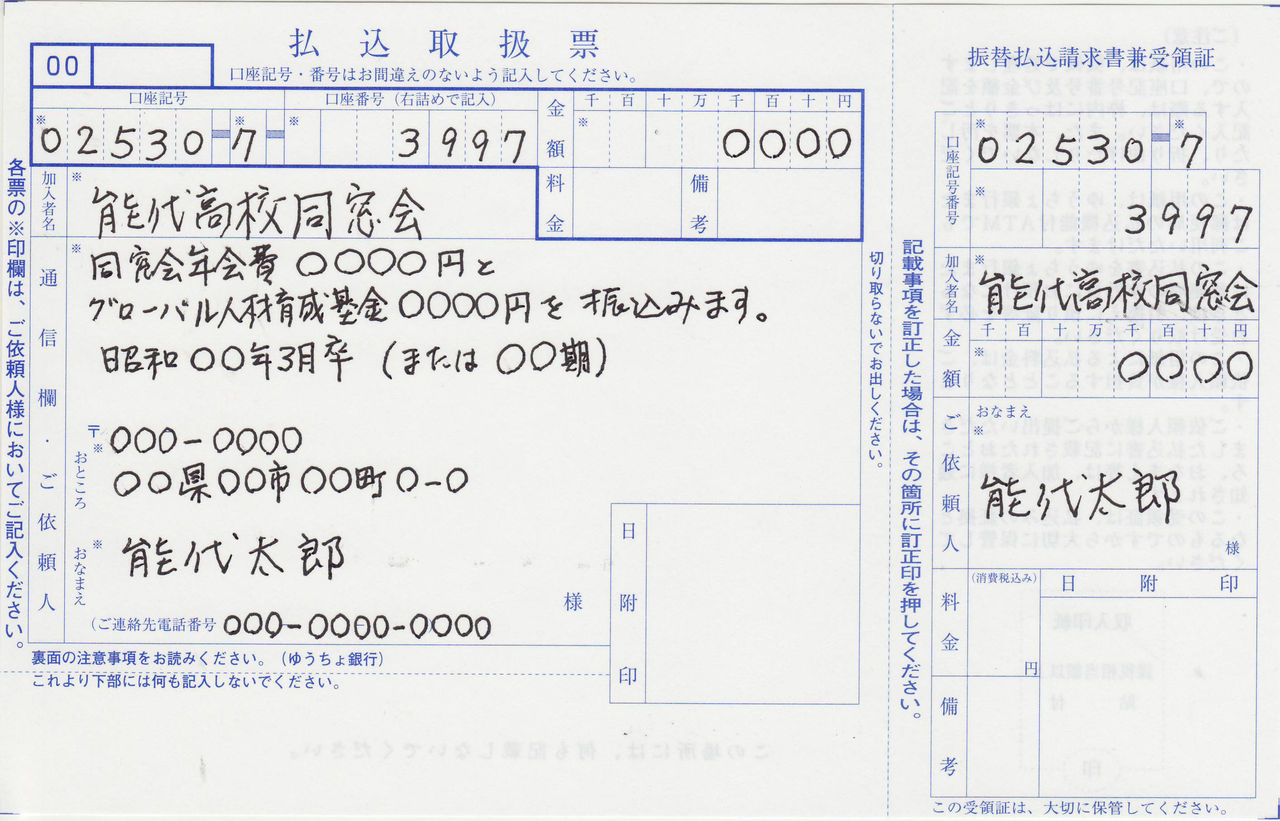 払込取扱票
00
口座記号・番号はお間違えのないよう記入してください。
口座記号 口座番号（右詰めで記入） 金額 千 百 十 万 千 百 十 円
※ 02530-7 ※ ※ 3997 ※ 0000
料金 備考
加入者名 ※ 能代高校同窓会
通信欄・ご依頼人
※ 同窓会年会費〇〇〇〇円と
グローバル人材育成基金〇〇〇〇円を振込みます。
昭和〇〇年3月卒（または〇〇期）
〒 000-0000
おところ ※ 〇〇県〇〇市〇〇町0-0
おなまえ ※ 能代太郎 様
（ご連絡先電話番号 000-0000-0000 ）
日附印
裏面の注意事項をお読みください。（ゆうちょ銀行）
これより下部には何も記入しないでください。
各票の※印欄は、ご依頼人様においてご記入ください。
切り取らないでお出しください。
記載事項を訂正した場合は、その箇所に訂正印を押してください。
振替払込請求書兼受領証
口座記号番号 ※ 02530-7 ※
※ 3997
加入者名 ※ 能代高校同窓会
金額 千 百 十 万 千 百 十 円
※ 0000
ご依頼人 おなまえ ※
能代太郎
様
料金 （消費税込み） 円
日附印
備考
この受領証は、大切に保管してください。